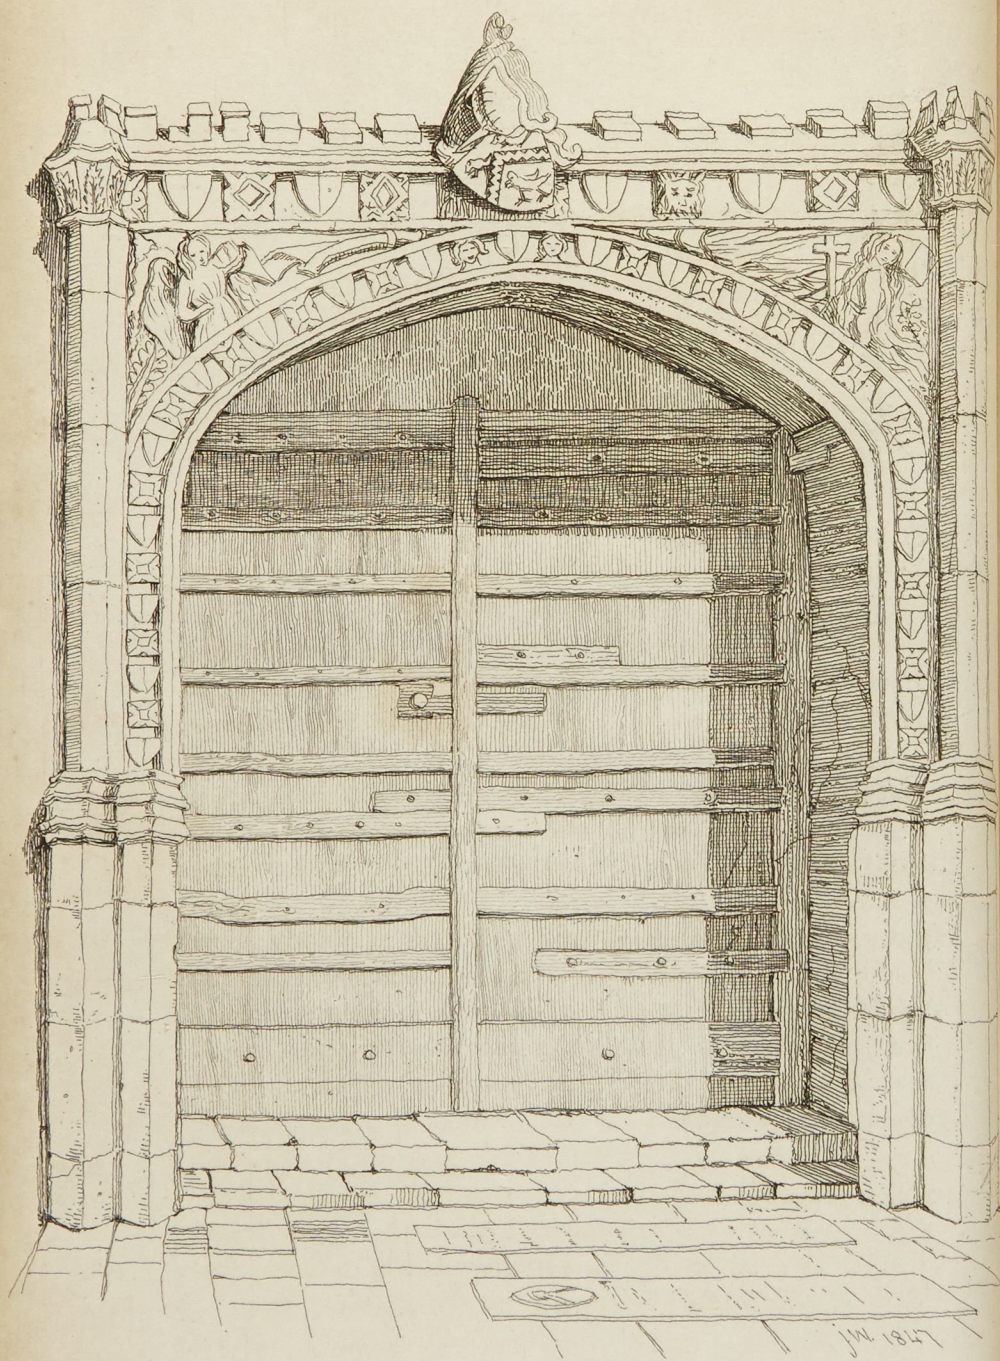 JW. 1847